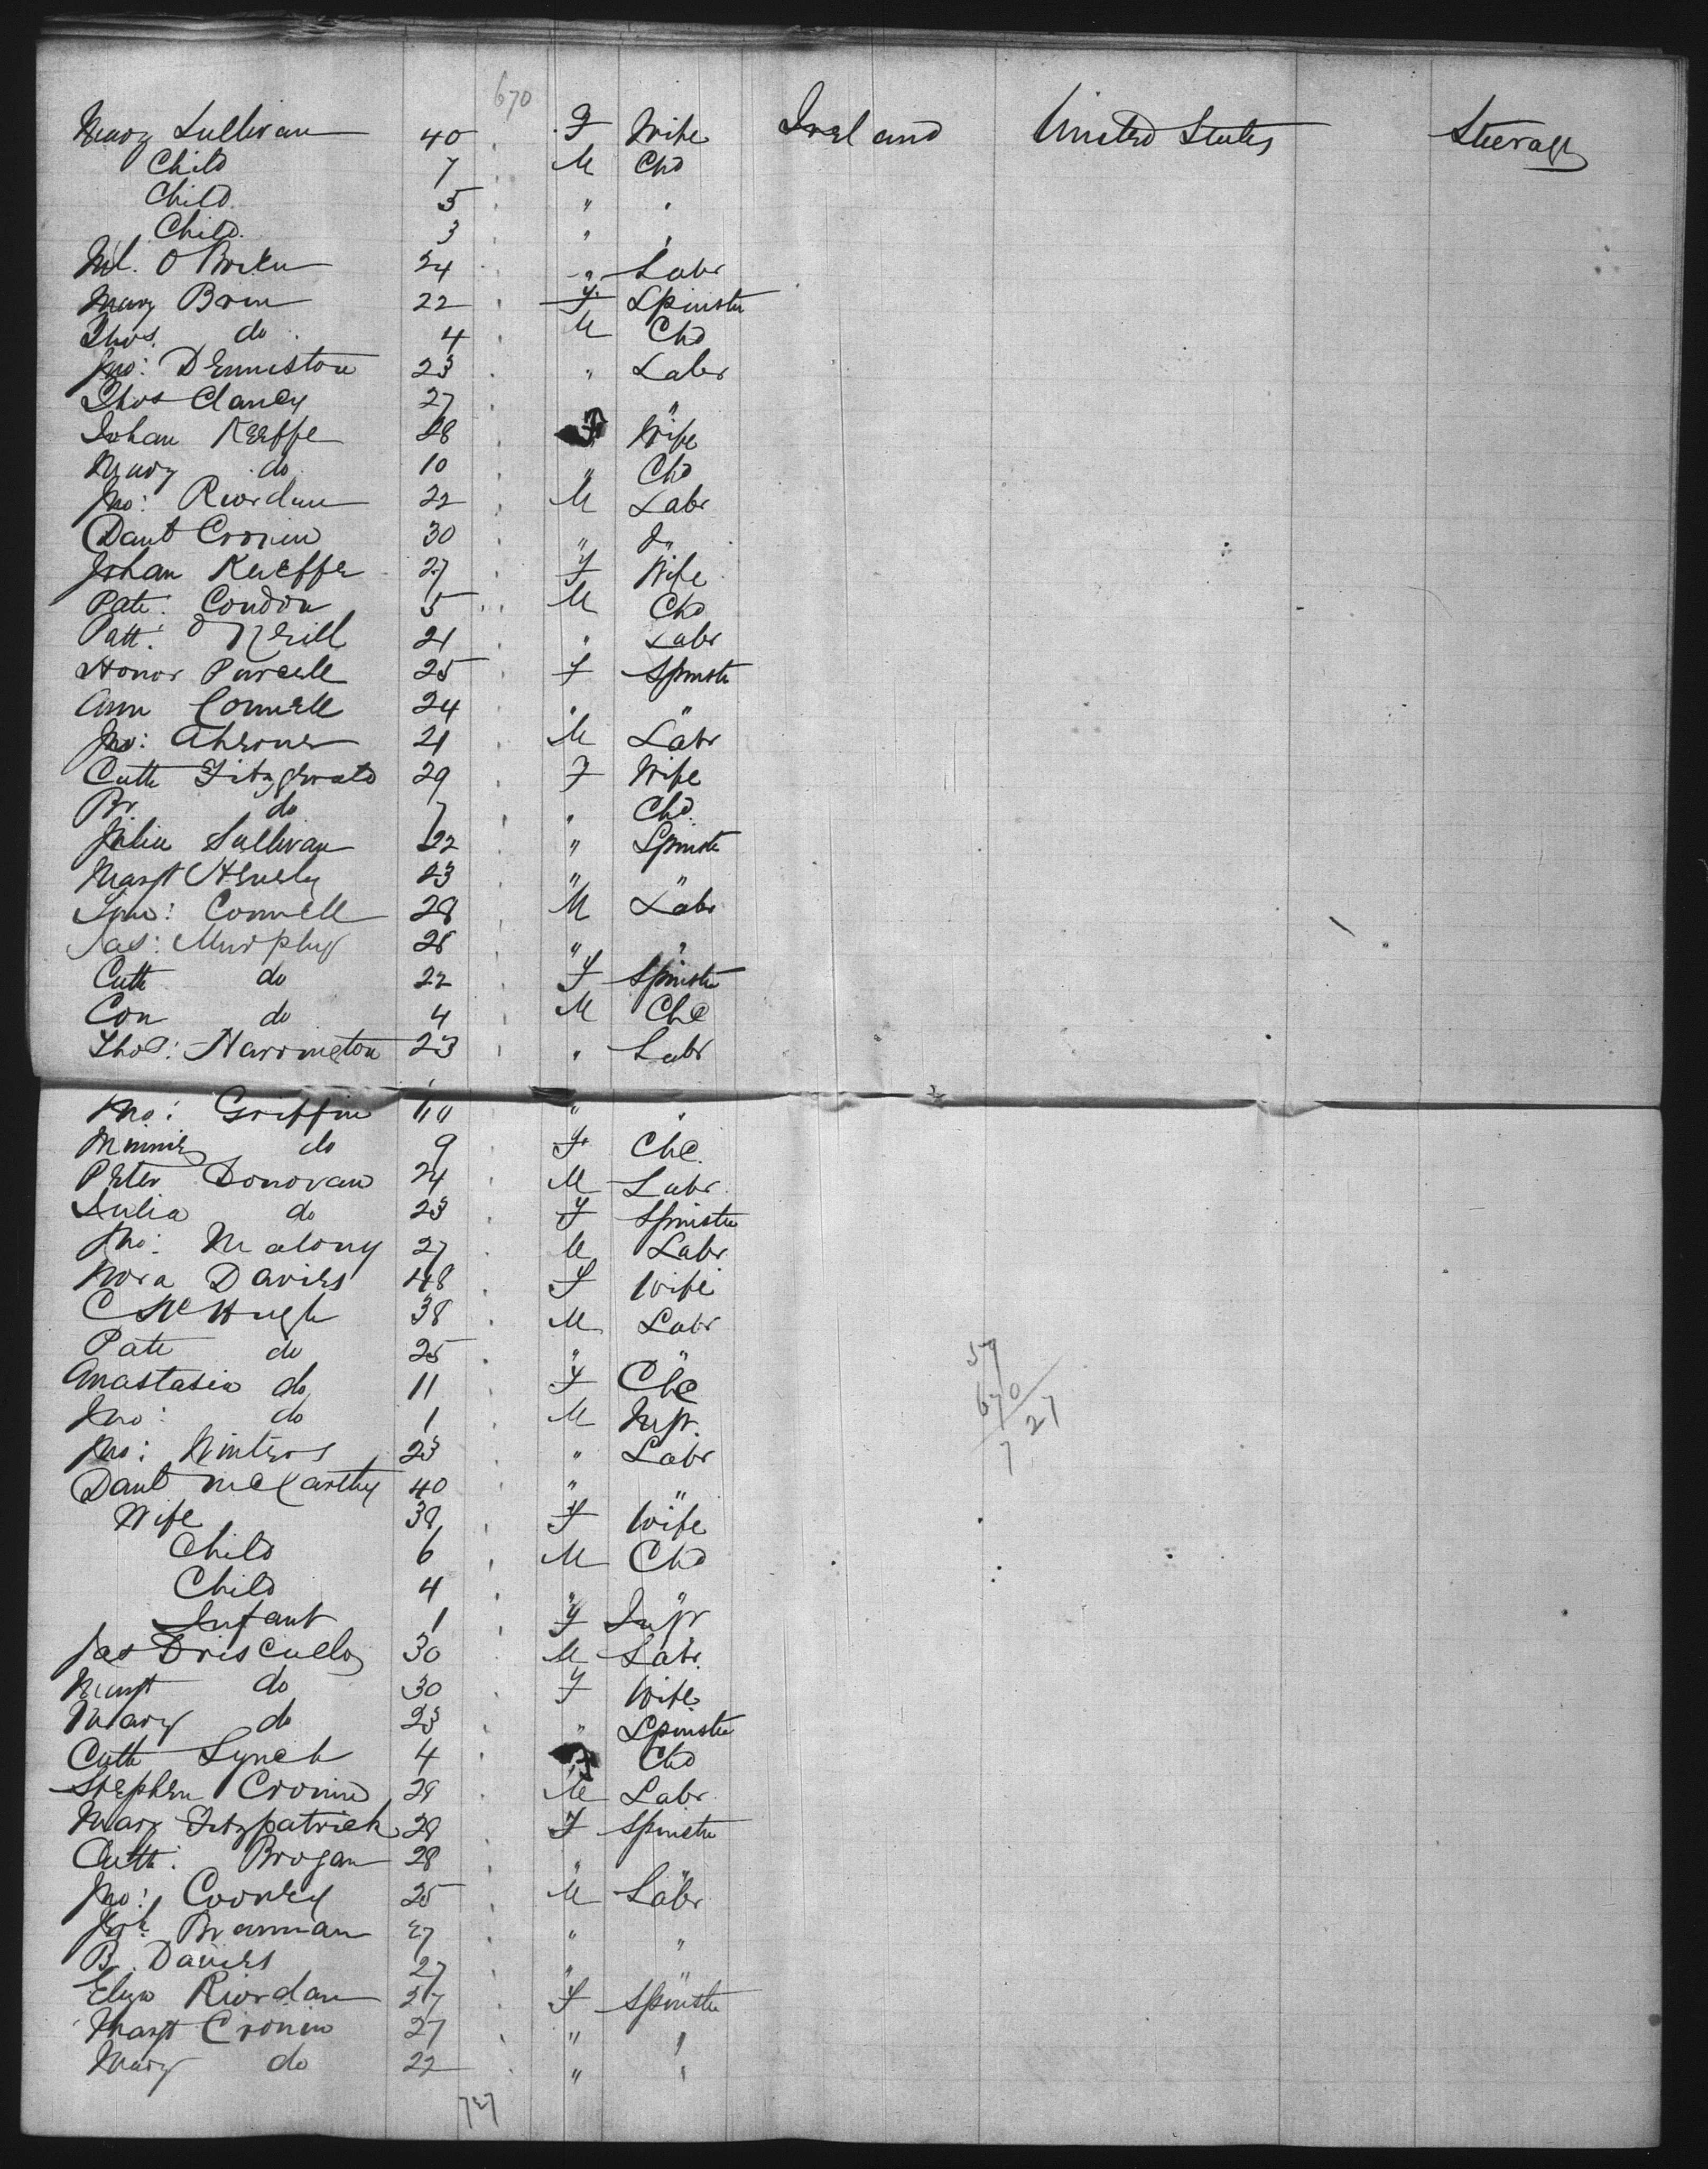 670
Mary Sullivan 40 F Wife Ireland United States Steerage
Child 7 M Chd
Child 5 " "
Child 3 " "
Ml. O Brien 24 " Labr
Mary Brien 22 F Spinster
Thos. do 4 M Chd
Jno: Denniston 23 " Labr
Thos Clancy 27 "
Johan Keeffe 28 F Wife
Mary do 10 " Chd
Jno: Riordan 22 M Labr
Danl Cronin 30 " Do
Johan Keeffe 27 F Wife
Patk: Condon 5 M Chd
Patt: O Neill 21 " Labr
Honor Purcell 25 F Spinster
Ann Connell 24 " "
Jno: Aherne 21 M Labr
Cath Fitzgerald 29 F Wife
Br. do 7 " Chd.
Julia Sullivan 22 " Spinster
Margt 23 " "
Connell 28 M Labr
Jas: Murphy 28 " "
Cath do 22 F Spinster
Con do 4 M Chd
Thos: Harrington 23 " Labr
Jno: Griffin " "
Minnie do 9 F Chd.
Peter Donovan 24 M Labr
Julia do 23 F Spinster
Jno: Malony 27 M Labr
Nora Davies 48 F Wife
C McHugh 38 M Labr
Pat do 25 " "
Anastasia do 11 F Chd
Jno: do 1 M Inft.
Jno: Winters 23 " Labr
Danl McCarthy 40 " "
Wife 38 F Wife
Child 6 M Chd
Child 4 " "
Infant 1 F Inft
Jas Driscull 30 M Labr
Margt do 30 F Wife
Mary do 23 " Spinster
Cath Lynch 4 F Chd
Stephen Cronin 28 M Labr
Mary Fitzpatrick 28 F Spinster
Cath: Brogan 28 " "
Jno: Cooney 25 M Labr
Brannan 27 " "
B. Davies 27 " "
Eliza Riordan 27 F Spinster
Margt Cronin 27 " "
Mary do 22 " "
57
670
727
727